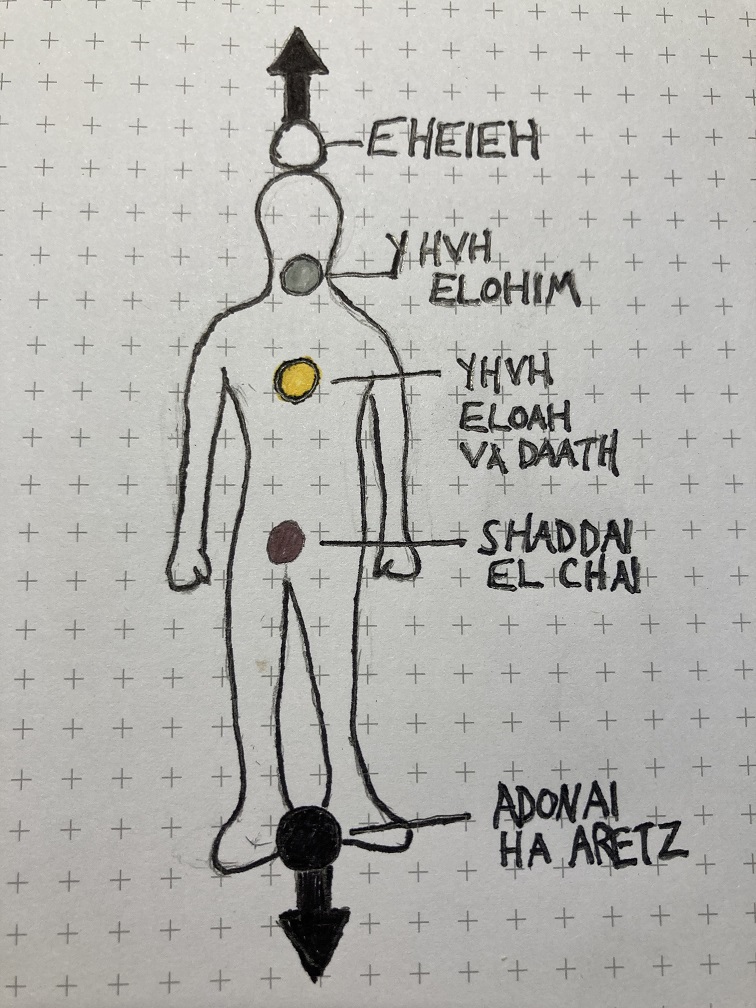 EHEIEH
YHVH
ELOHIM
YHVH
ELOAH
VA DAATH
SHADDAI
EL CHAI
ADONAI
HA ARETZ